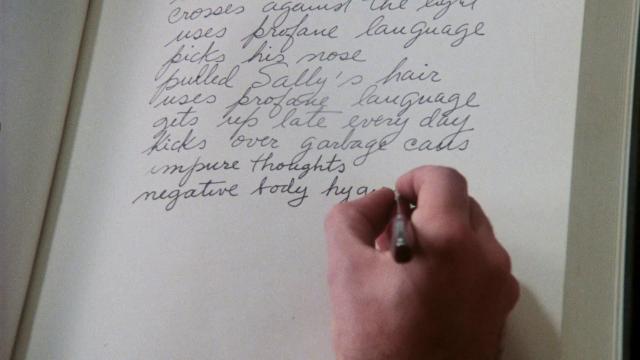 crosses against the light
uses profane language
picks his nose
pulled Sally's hair
uses profane language
gets up late every day
kicks over garbage cans
impure thoughts
negative body hyg